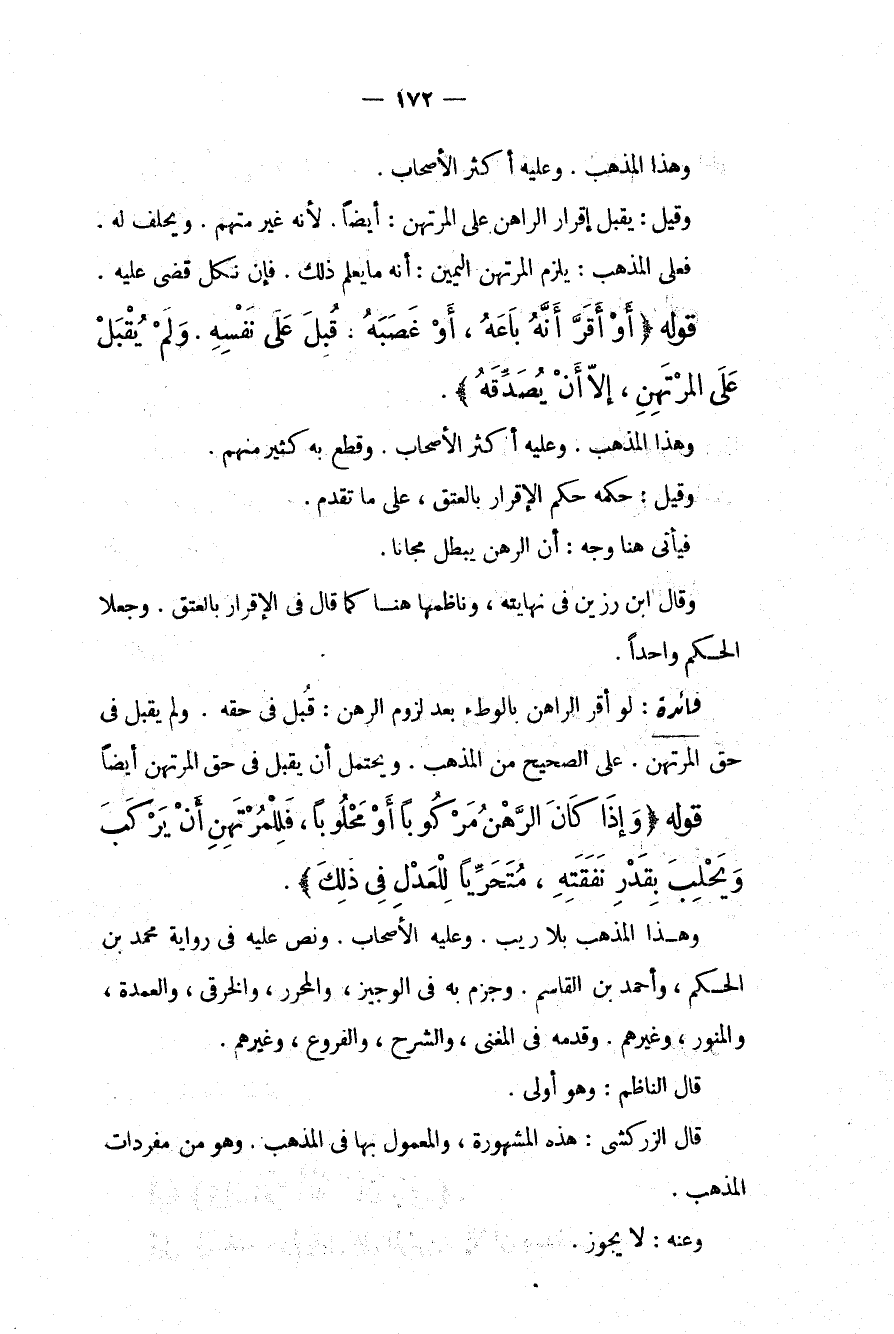 — ١٧٢ —
وهذا المذهب . وعليه أكثر الأصحاب .
وقيل : يقبل إقرار الراهن على المرتهن : أيضاً . لأنه غير متهم . ويحلف له .
فعلى المذهب : يلزم المرتهن اليمين : أنه ما يعلم ذلك . فإن نكل قضى عليه .
قوله ﴿ أَوْ أَقَرَّ أَنَّهُ بَاعَهُ ، أَوْ غَصَبَهُ : قُبِلَ عَلَى نَفْسِهِ . وَلَمْ يُقْبَلْ
عَلَى المرْتَهِنِ ، إلاَّ أَنْ يُصَدِّقَهُ ﴾ .
وهذا المذهب . وعليه أكثر الأصحاب . وقطع به كثير منهم .
وقيل : حكمه حكم الإقرار بالعتق ، على ما تقدم .
فيأتى هنا وجه : أن الرهن يبطل مجانا .
وقال ابن رزين فى نهايته ، وناظمها هنا كما قال فى الإقرار بالعتق . وجعلا
الحكم واحداً .
فائدة : لو أقر الراهن بالوطء بعد لزوم الرهن : قُبل فى حقه . ولم يقبل فى
حق المرتهن . على الصحيح من المذهب . ويحتمل أن يقبل فى حق المرتهن أيضاً
قوله ﴿ وَإِذَا كَانَ الرَّهْنُ مَرْكُوباً أَوْ مَحْلُوباً ، فَلِلْمُرْتَهِنِ أَنْ يَرْكَبَ
وَيَحْلِبَ بِقَدْرِ نَفَقَتِهِ ، مُتَحَرِّياً لِلْعَدْلِ فِى ذلِكَ ﴾ .
وهذا المذهب بلا ريب . وعليه الأصحاب . ونص عليه فى رواية محمد بن
الحكم ، وأحمد بن القاسم . وجزم به فى الوجيز ، والمحرر ، والخرقى ، والعمدة ،
والمنور ، وغيرهم . وقدمه فى المغنى ، والشرح ، والفروع ، وغيرهم .
قال الناظم : وهو أولى .
قال الزركشى : هذه المشهورة ، والمعمول بها فى المذهب . وهو من مفردات
المذهب .
وعنه : لا يجوز .